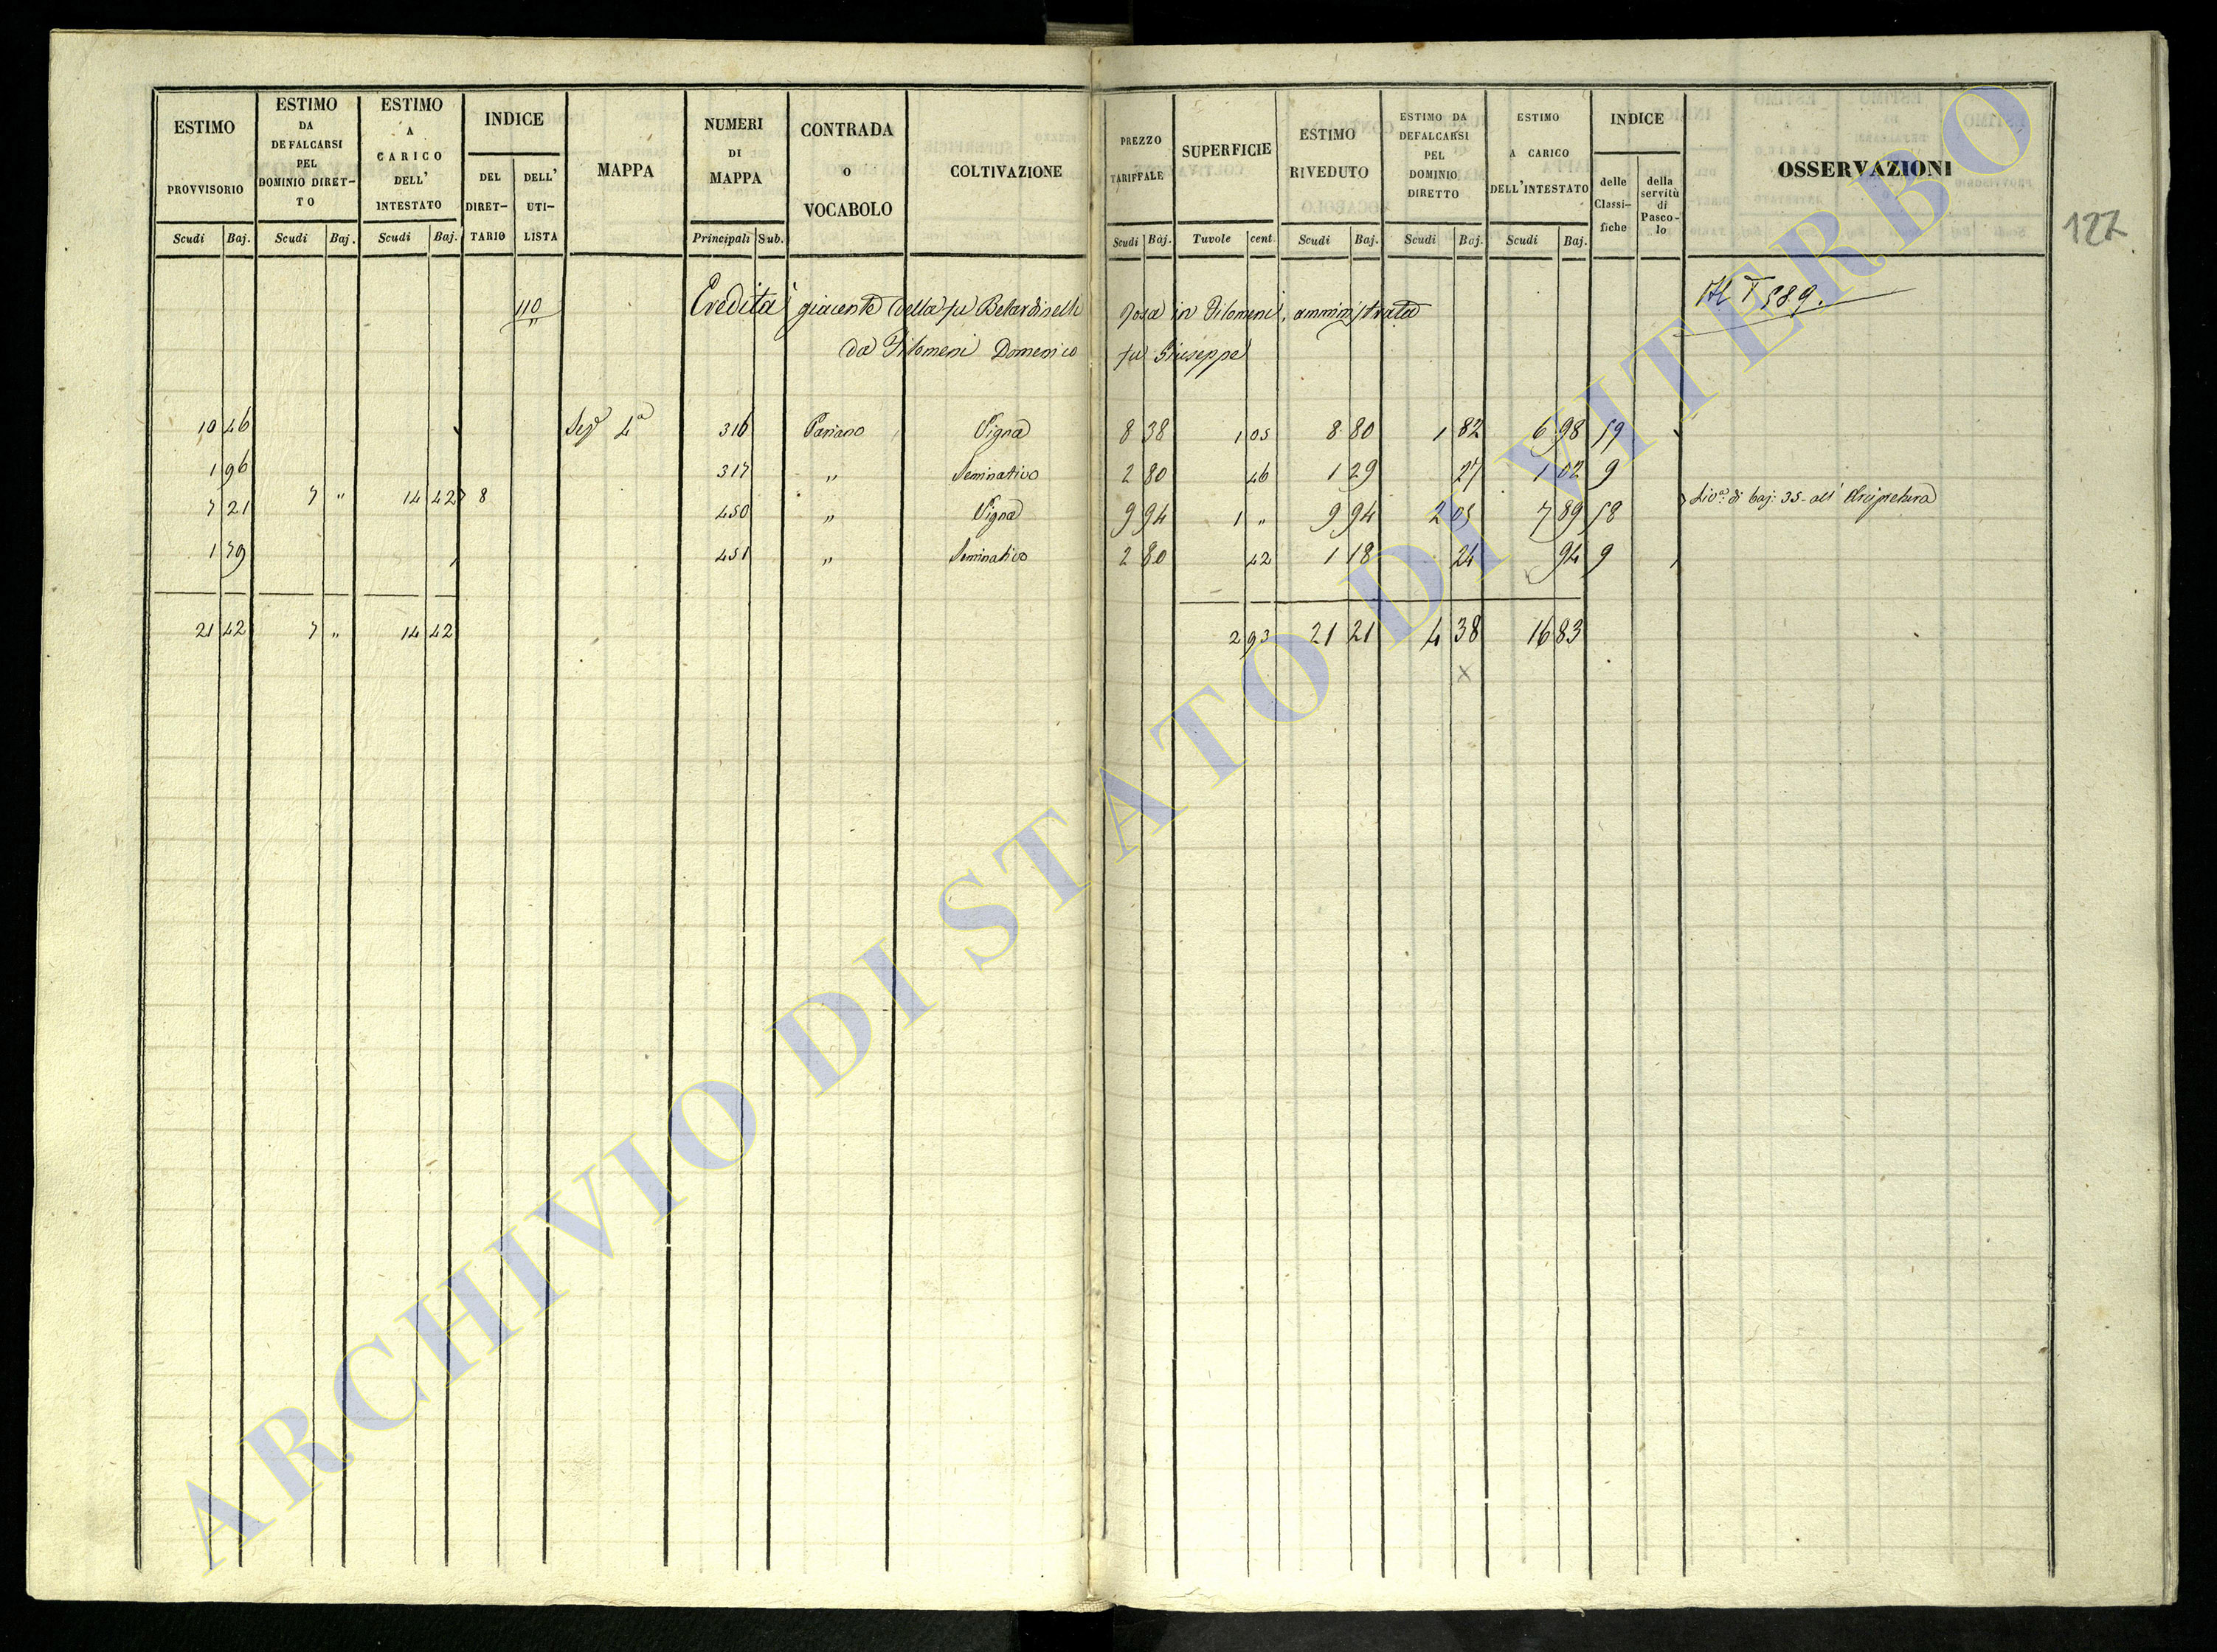 ESTIMO PROVVISORIO Scudi Baj.
ESTIMO DA DEFALCARSI PEL DOMINIO DIRET- TO Scudi Baj.
ESTIMO A CARICO DELL' INTESTATO Scudi Baj.
INDICE DEL DIRET- TARIO DELL' UTI- LISTA
MAPPA
NUMERI DI MAPPA Principali Sub.
CONTRADA O VOCABOLO
COLTIVAZIONE
PREZZO TARIFFALE Scudi Baj.
SUPERFICIE Tuvole cent.
ESTIMO RIVEDUTO Scudi Baj.
ESTIMO DA DEFALCARSI PEL DOMINIO DIRETTO Scudi Baj.
ESTIMO A CARICO DELL'INTESTATO Scudi Baj.
INDICE delle Classi- fiche della servitù di Pasco- lo
OSSERVAZIONI
127
110 Eredità giacente della fu Belardinelli Rosa in Filomeni, amministrata
589.
da Filomeni Domenico fu Giuseppe
10 46 Sez. 4a 316 Pariano Vigna 8 38 1 05 8 80 1 82 6 98 59
1 96 317 " Seminativo 2 80 46 1 29 27 1 02 9
7 " 14 42 8 Liv. di baj: 35 all' Arcipretura
7 21 450 " Vigna 9 94 1 " 9 94 2 05 7 89 58
1 79 451 " Seminativo 2 80 42 1 18 24 94 9
21 42 7 " 14 42 2 93 21 21 4 38 16 83
x
ARCHIVIO DI STATO DI VITERBO